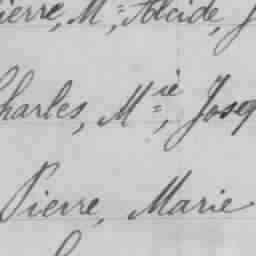 ierre, M=, Alcide, J
Charles, M=ie, Josep
Pierre, Marie